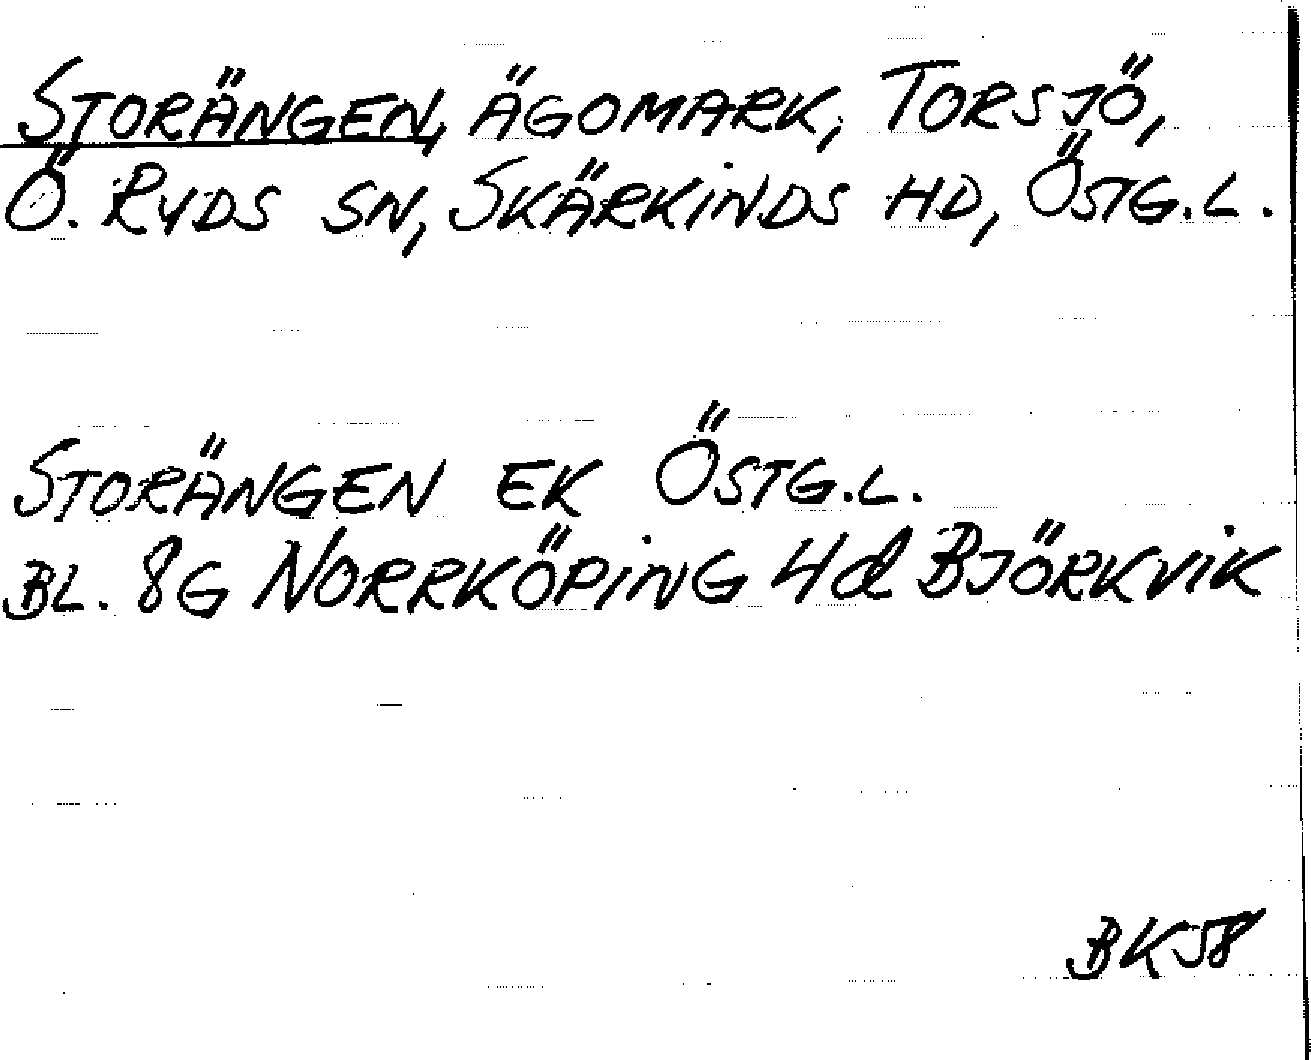 STORÄNGEN, ÄGOMARK, TORSJÖ,
Ö. RYDS SN, SKÄRKINDS HD, ÖSTG.L.
STORÄNGEN EK ÖSTG.L.
BL. 8G NORRKÖPING 4d BJÖRKVIK
BK58